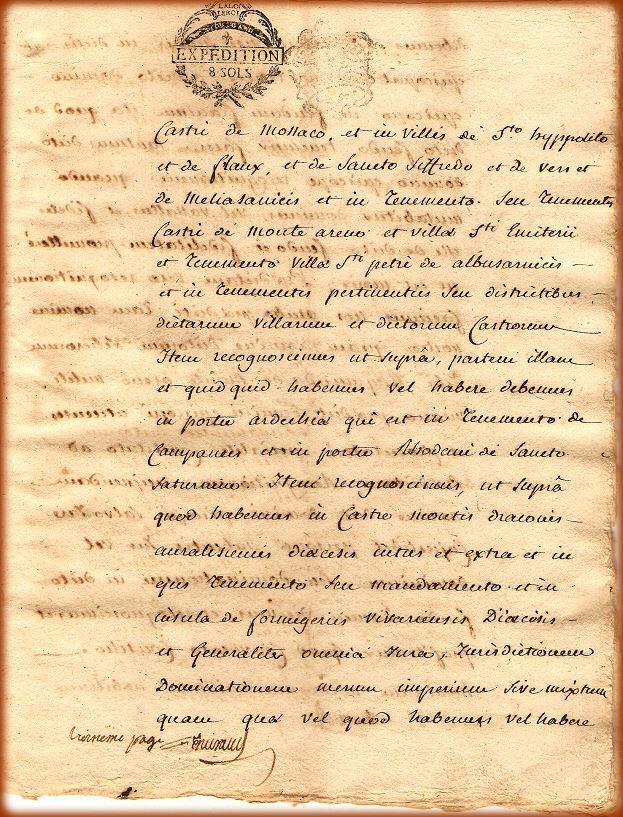 EXPEDITION
8 SOLS
Castri de Monaco, et in villis de Sto hyppolito
et de flaux, et de Sancto Siffredo et de vers et
de Meliasanicis et in Tenemento Seu Tenementis
Castri de Monte areno et villa Sti Emiterii
et Tenemento villa Sti petri de albusarnicis —
et in Tenementis pertinentiis Seu districtibus
dictarum villarum et dictorum Castrorum
Item recognoscimus ut Suprà, partem illam
et quid quid habemus vel habere debemus
in portu ardechia qui est in Tenemento de
Campanis et in portu Rhodani de Sancto
Saturnino Item recognoscimus, ut Suprà
quod habemus in Castro montis draconis —
auraliscensis diocesis intus et extra et in
ejus Tenemento Seu mandamento et in
insula de formigeriis vivariensis Diocesis —
et Generaliter omnia Jura, Jurisdictionem
Dominationem merum imperium Sive mixtum
quam qua vel quod habemus vel habere
page